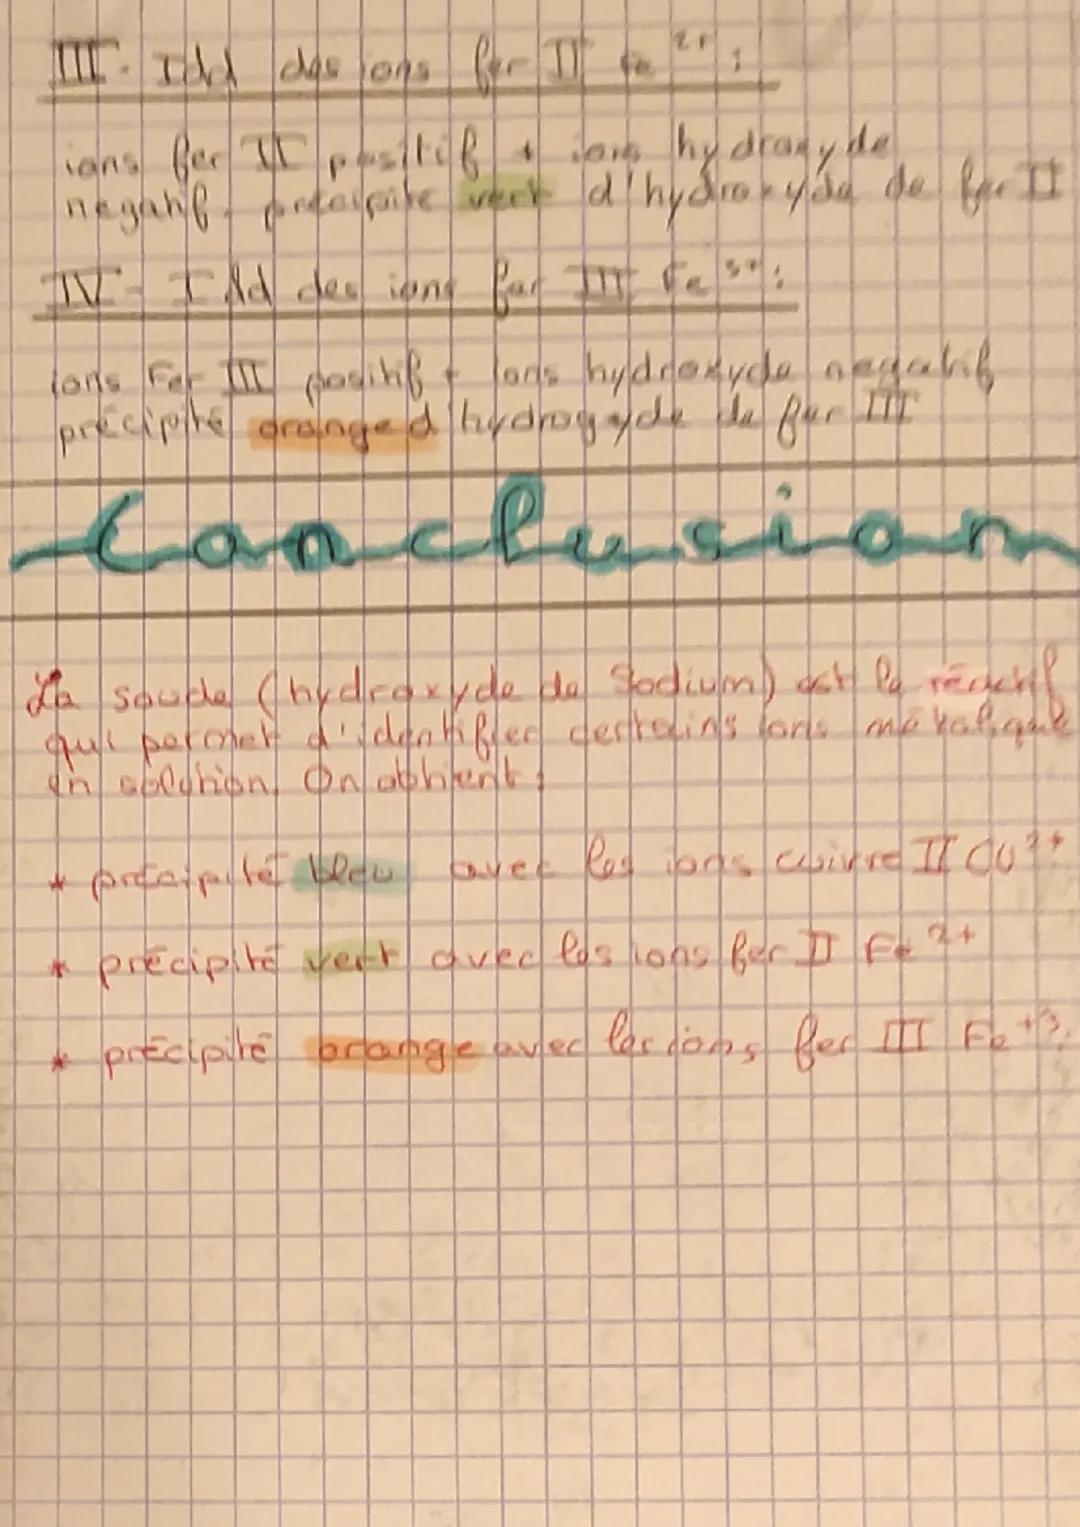 III - Idd des ions fer II Fe 2+ :
ions fer II positif + ions hydroxyde
negatif précipité vert d'hydroxyde de fer II
IV - Idd des ions fer III Fe 3+ :
ions Fer III positif + ions hydroxyde negatif
précipité orange d'hydrogyde de fer III
Conclusion
La soude (hydroxyde de Sodium) est le réactif
qui permet d'identifier certains ions métalique
en solution. On obtient :
* précipité bleu avec les ions cuivre II Cu 2+
* précipité vert avec les ions fer II Fe 2+
* précipité orange avec les ions fer III Fe +3.